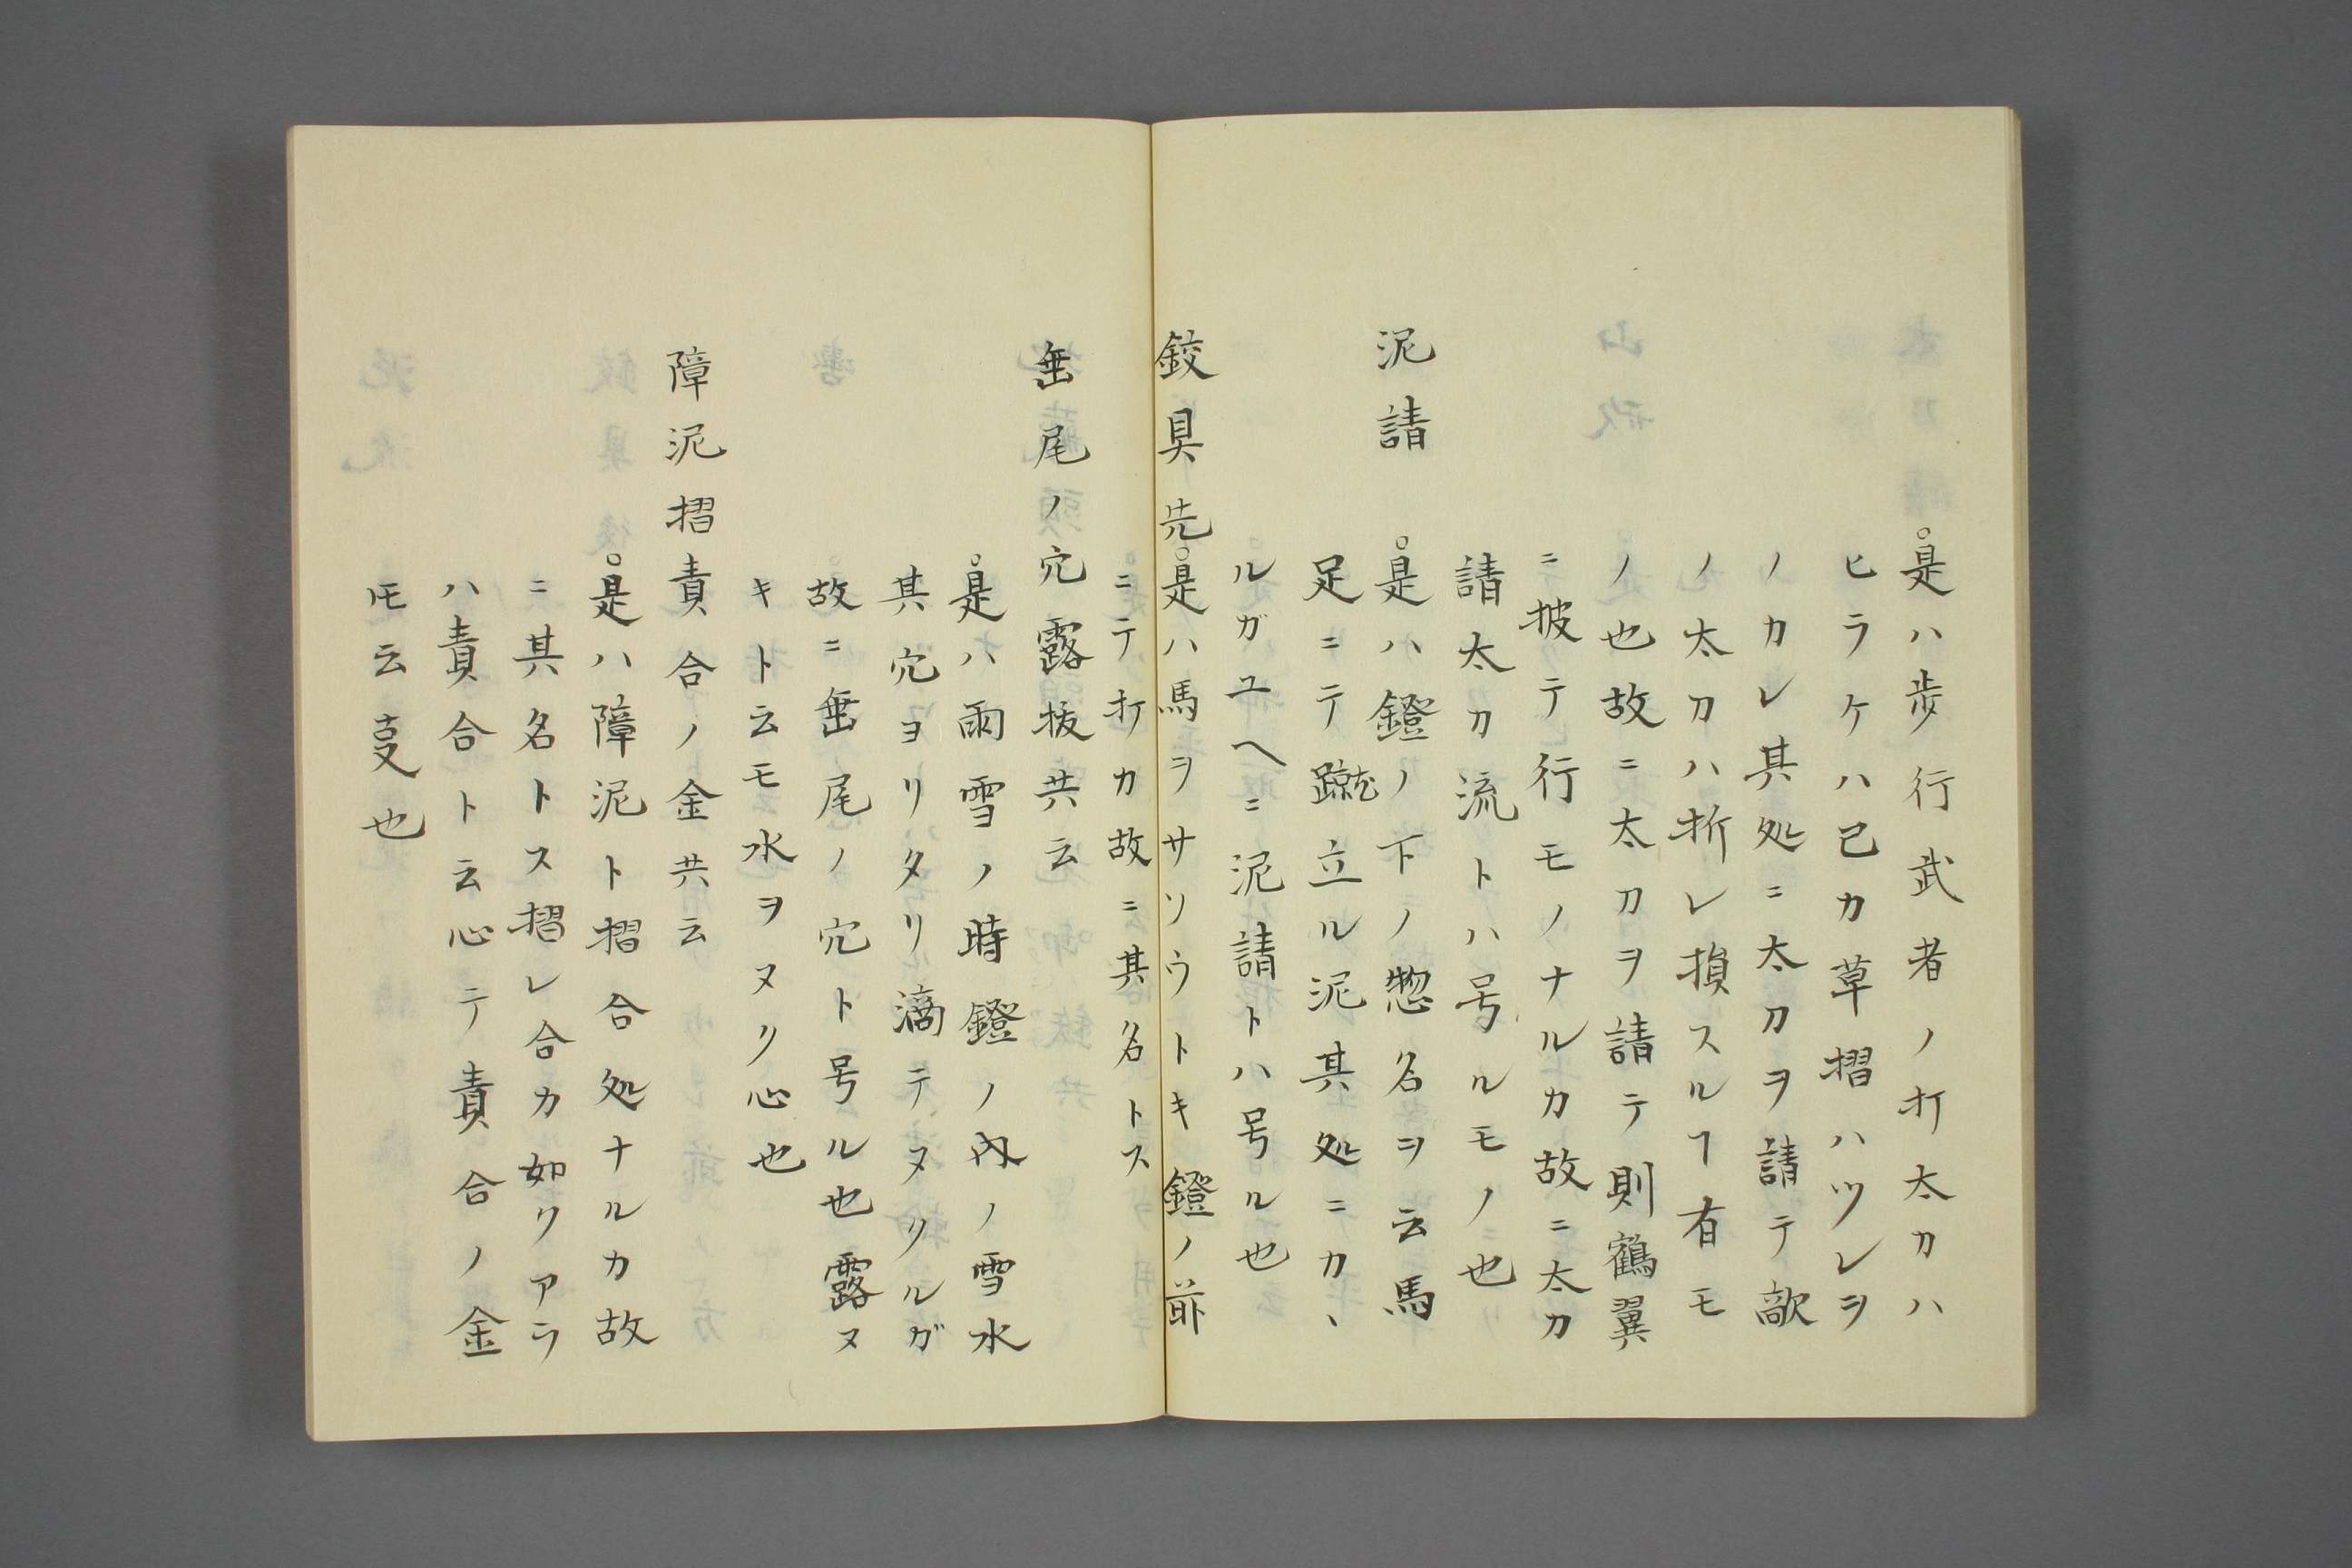 是ハ歩行武者ノ打太刀ハ
ヒラケハ己カ草摺ハツレヲ
ノカレ其処ニ太刀ヲ請テ敵
ノ太刀ハ折レ損スルヿ有モ
ノ也故ニ太刀ヲ請テ則鶴翼
ニ披テ行モノナルカ故ニ太刀
請太刀流トハ号ルモノ也
泥請
是ハ鐙ノ下ノ惣名ヲ云馬
足ニテ蹴立ル泥其処ニカヽ
ルガユヘニ泥請トハ号ル也
鉸具先是ハ馬ヲサソウトキ鐙ノ前
ニテ打カ故ニ其名トス
垂尾ノ穴露抜共云
是ハ雨雪ノ時鐙ノ内ノ雪水
其穴ヨリタリ滴テヌリルガ
故ニ垂尾ノ穴ト号ル也露ヌ
キト云モ水ヲヌク心也
障泥摺責合ノ金共云
是ハ障泥ト摺合処ナルカ故
ニ其名トス摺レ合カ如クアラ
ハ責合ト云心テ責合ノ金
ㇳモ云叓也